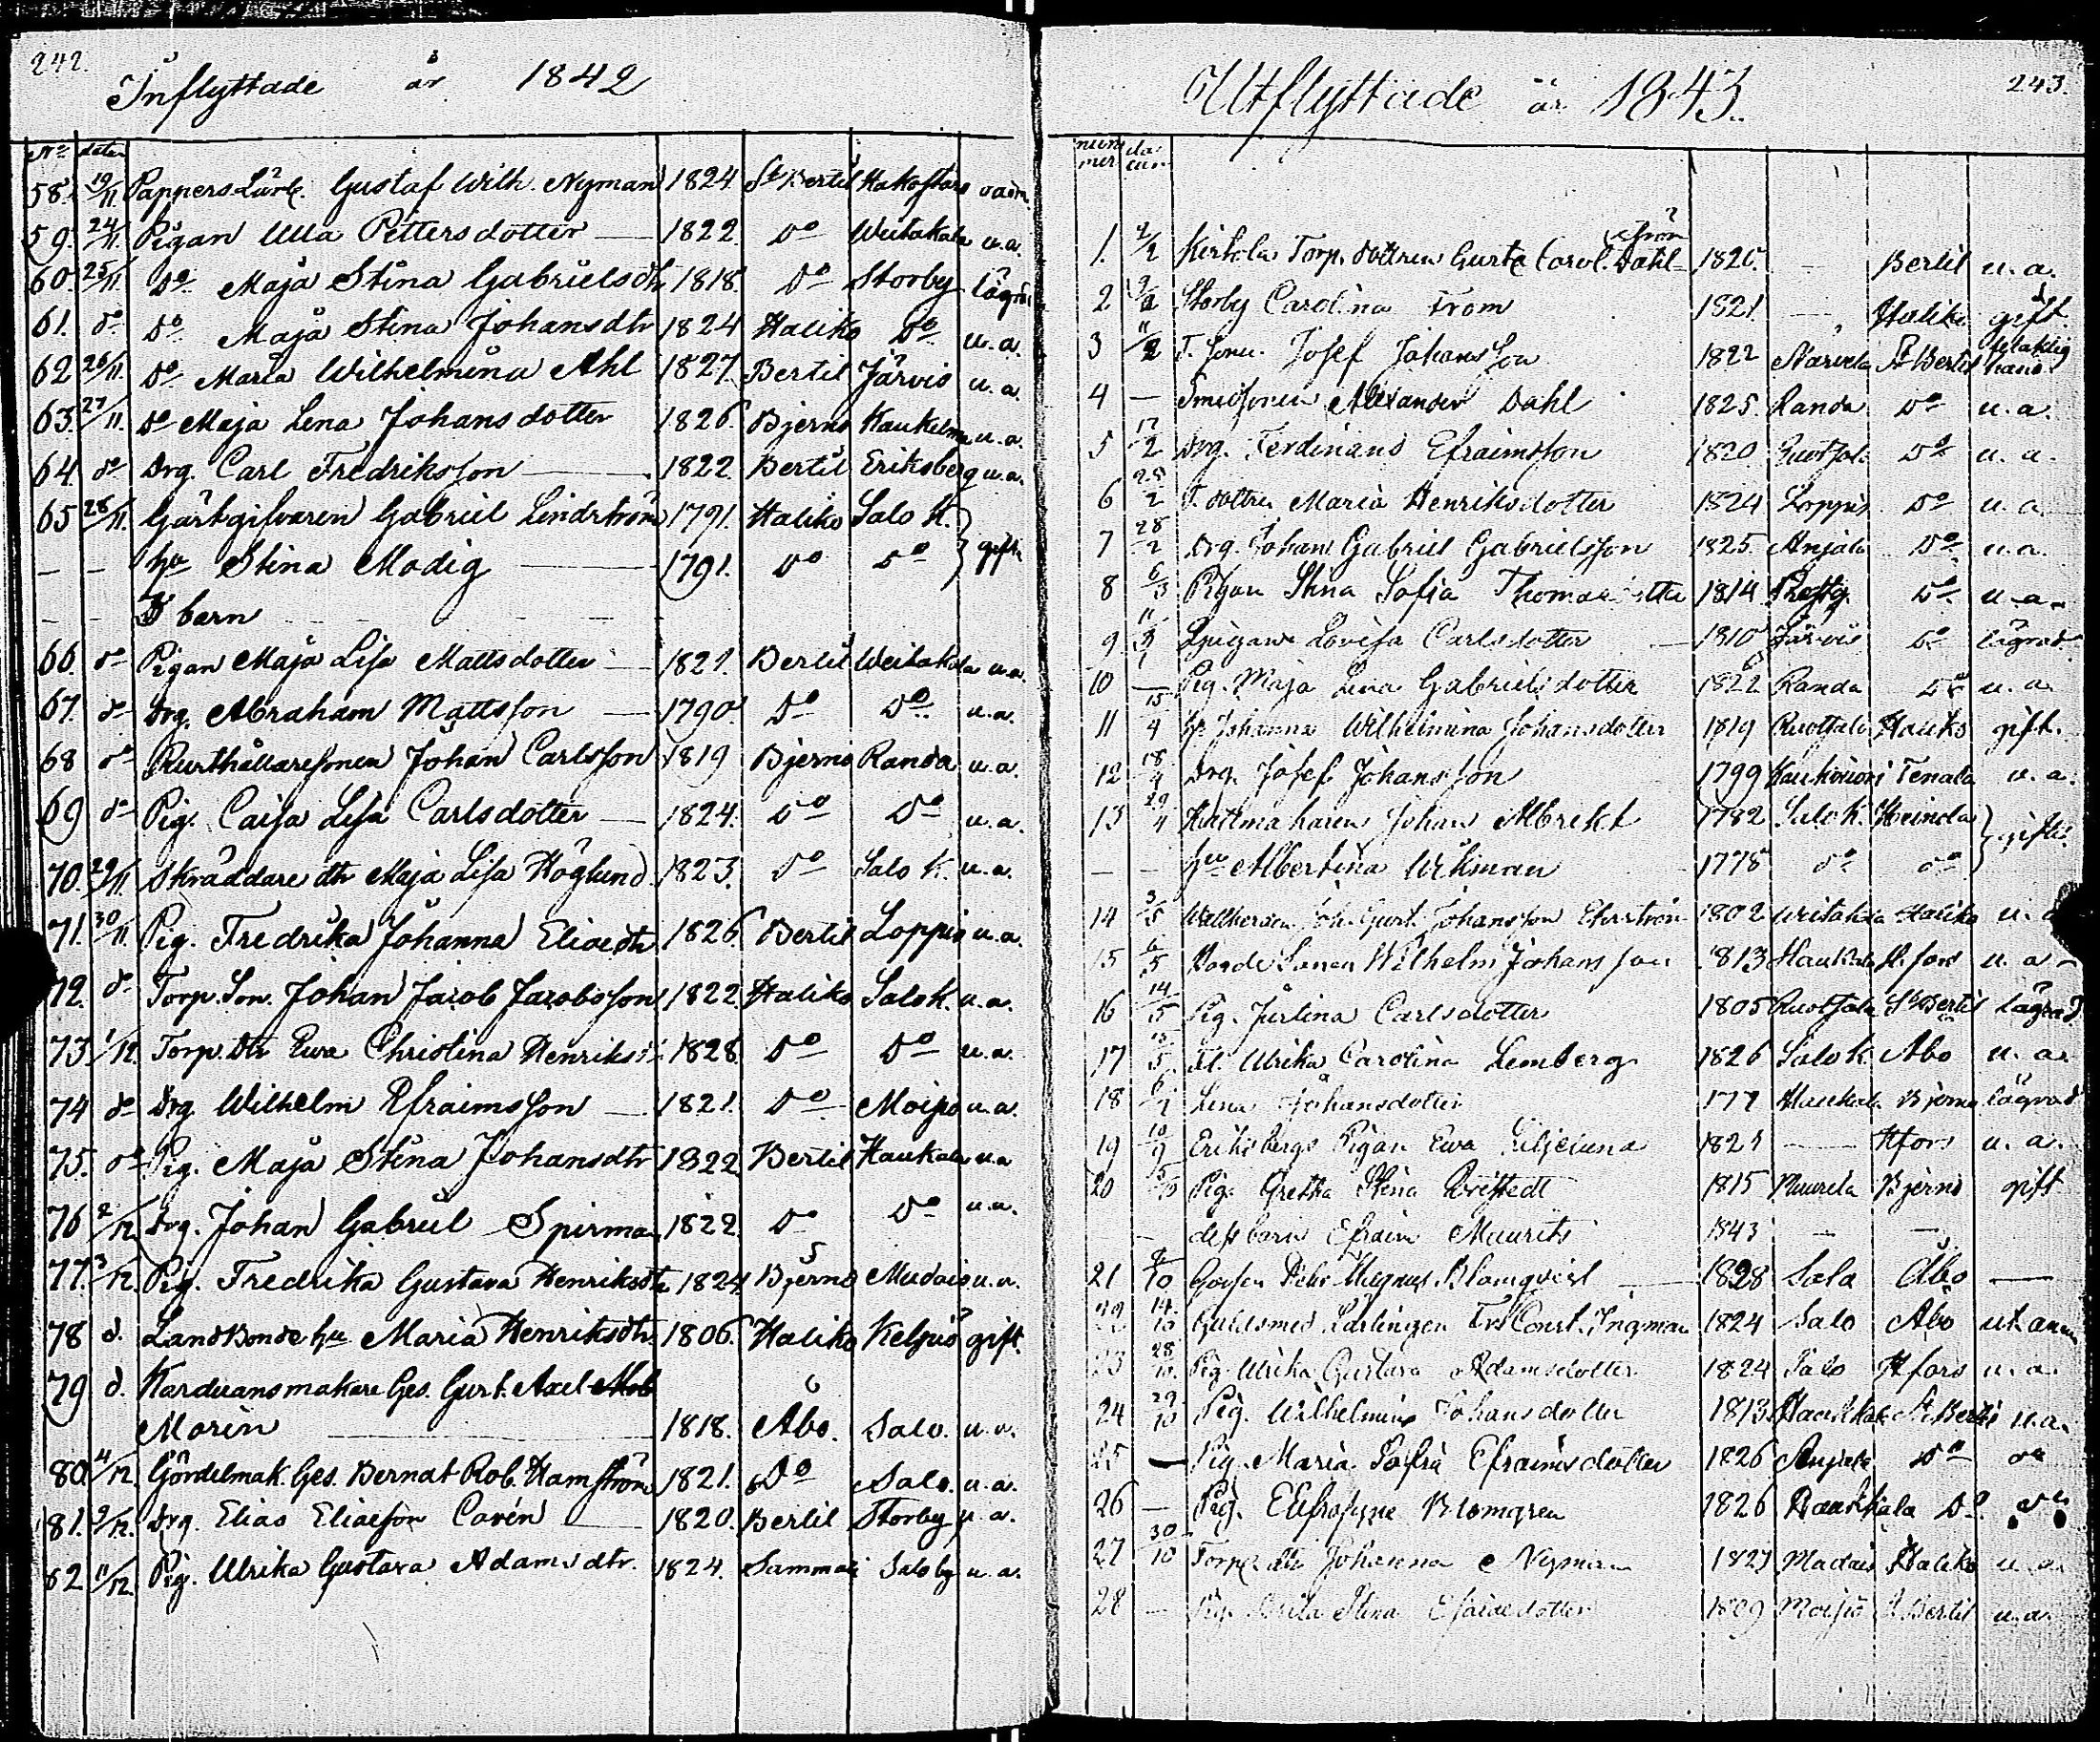 242.
Inflyttade år 1842
No daten
58. 19/11 Pappers Lärl. Gustaf Wilh. Nyman 1824. St Bertil
59. 24/11 Pigan Ulla Pettersdotter 1822. Do Weitakala u.a.
60. 25/11 Do Maja Stina Gabrielsdtr 1818. Do Storby lägrad
61. do Do Maja Stina Johansdtr 1824 Haliko Do u.a.
62 26/11 Do Maria Wilhelmina Ahl 1827. Bertil Järvis u.a.
63. 27/11 Do Maja Lena Johansdotter 1826. Bjerno u.a.
64 do Drg. Carl Fredriksson 1822. Bertil Eriksberg u.a.
65 28/11 Gästgifvaren Gabriel Lindström 1791. Haliko Salo K.
— — hu Stina Modig 1791. Do Do gift
— — barn
66. do Pigan Maja Lisa Mattsdotter 1821. Bertil Weitakala u.a.
67. do Drg. Abraham Mattsson 1790. Do Do u.a.
68 do Rusthållaresonen Johan Carlsson 1819 Bjerno Randa u.a.
69 do Pig. Caisa Lisa Carlsdotter 1824. Do Do u.a.
70. 29/11 Skräddare dtr Maja Lisa Höglund 1823. Do Salo K. u.a.
71. 30/11 Pig. Fredrika Johanna Eliaedtr 1826. Bertil Loppis u.a.
72. do Torp. Son. Johan Jacob Jacobsson 1822. Haliko Salo K. u.a.
73 1/12. Torp. Dtr Ewa Christina Henriksd 1828. Do Do u.a.
74 do Drg Wilhelm Efraimsson 1821. Do Moisio u.a.
75. do Pig. Maja Stina Johansdtr 1822 Bertil Haukala u.a
76 2/12 Drg. Johan Gabriel Spirman 1822. Do Do u.a.
77. 3/12. Pig. Fredrika Gustava Henriksdtr 1824 Bjerno Mudais u.a.
78 d. Landbonde hu Maria Henriksdtr. 1806. Haliko Keljio gift.
79 d. Karduansmakare Ges. Gust. Axel
Morin 1818. Åbo. Salo. u.a.
80. 4/12. Gördelmak. Ges. Berndt Rob. Hamström 1821. Do Salo. u.a.
81. 9/12. Drg. Elias Eliaeson Cavén 1820. Bertil Storby u.a.
82 11/12. Pig. Ulrika Gustava Adamsdtr. 1824. Salo by u.a.
243.
Utflyttade år 1843.
nummer datum
1. 2/2 Kirkola Torp. dottren Gusta Carol. Dahlström 1820. — Bertil u.a.
2 9/2 Storby Carolina From 1821. — Haliko gift.
3 11/2 T. Sonen Josef Johansson 1822 St Bertil
4 — Smedsonen Alexander Dahl 1825. Randa Do u.a.
5 17/2 Drg. Ferdinand Efraimsson 1820 Do u.a.
6 25/2 T. dottren Maria Henriksdotter 1824 Loppis Do u.a.
7 28/2 Drg. Johan Gabriel Gabrielsson 1825. Anjala Do u.a.
8 6/3 Pigan Stina Sofia 1814 Prestg. Do u.a.
9 11/3 Lovisa Carlsdotter 1810 Järvis Do lägrad
10 — Pig. Maja Lena Gabrielsdotter 1822 Randa Do u.a.
11 15/4 Johanna Wilhelmina Johansdotter 1819 Ruotsala gift.
12 18/4 Drg. Josef Johansson 1799 Tenala u.a.
13 29/4 Hattmakaren Johan Albrekt 1782 Salo K.
— — hu Albertina Wikman 1778 do do gifta
14 3/5 Joh. Gust. Johansson Ehrström 1802 Weitakala Haliko u.a
15 6/5 Wilhelm Johansson 1813 H.fors u.a
16 14/5 Pig. Carlsdotter 1805 Ruotsala St Bertil lägrad
17 15/5 Ulrika Carolina Lemberg 1826 Salo K. Åbo u.a.
18 Lena Johansdotter Bjerno lägrad
19 Eriksbergs Pigan Ewa 1821 — Hfors u.a.
20 Pig. Greta Stina 1815 Bjerno gift
— dess barn Efraim Maurits 1843 — —
21 Magnus Blomqvist 1828 Salo Åbo —
22 14/10 Guldsmed Lärlingen Const. Ingman 1824 Salo Åbo
23 28/10 Pig. Ulrika Gustava Adamsdotter 1824 Salo Hfors u.a.
24 29/10 Pig. Wilhelmina Johansdotter 1813 St. Bertil u.a.
25 — Pig. Maria Sofia Efraimsdotter 1826 Anjala Do do
26 — Pig. Eufrosyne Blomgren 1826 Do do
27 30/10 Johanna Nyman Mudais Haliko u.a.
28 — Pig. Stina Esaiaedotter 1809 Moisio St. Bertil u.a.